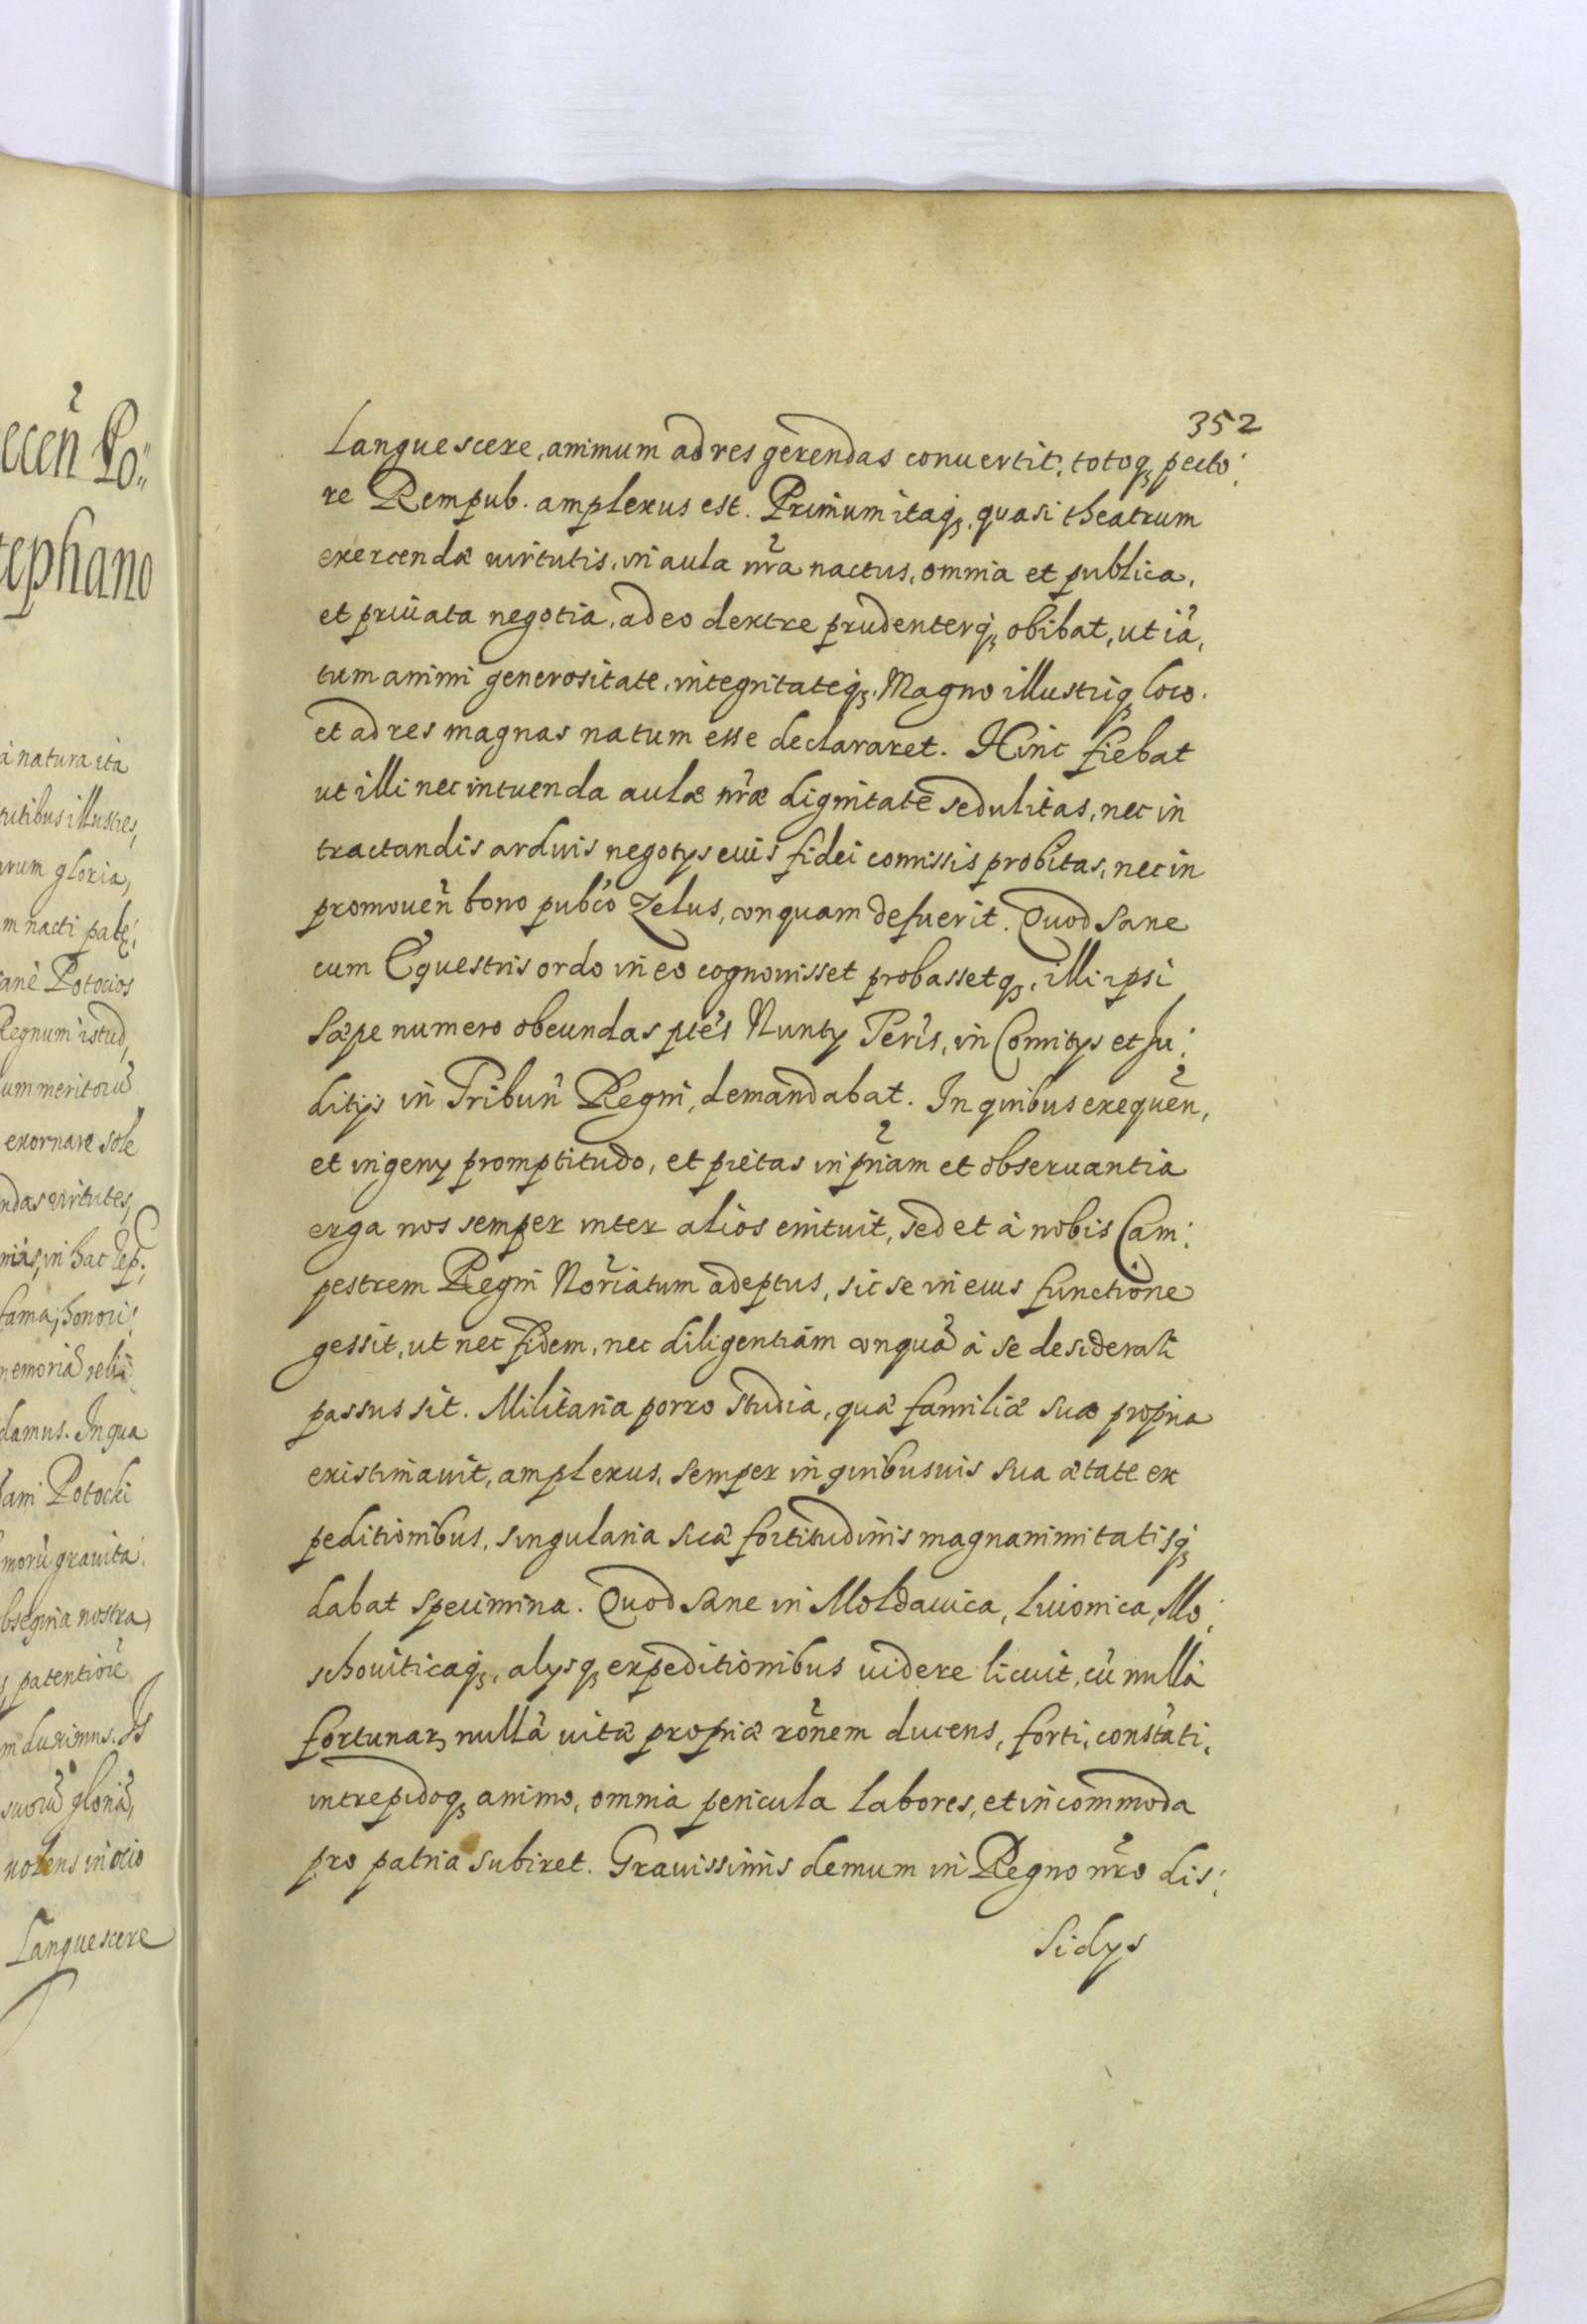 ecen̄ Po:
tephano
à natura ita
tutibus illustres,
arum gloria,
m nacti pate:
ane Potocios
Regnum istud,
um meritorũ
exornare sole
ndas virtutes,
fama, honori:
memoriã
damus. In qua
Potocki
morũ grauita:
bsequia nostra,
patentiorẽ
m duximus. Is
suorũ gloriã,
nolens in ocio
Languescere
352
Languescere, animum ad res gerendas conuertit, totoq₃ pecto:
re Rempub. amplexus est. Primum itaq₃, quasi theatrum
exercendæ uirtutis, in aula nrã nactus, omnia et publica,
et priuata negotia, adeo dextre prudenterq₃ obibat, ut iã,
tum animi generositate, integritateq₃. Magno illustriq₃ loco.
et ad res magnas natum esse declararet. Hinc fiebat
ut illi nec in tuenda aulæ nr̃æ dignitatẽ sedulitas, nec in
tractandis arduis negotys euis fidei comissis probitas, nec in
promouen̄ bono pubc̃o Zelus, vnquam defuerit. Quod sane
cum Equestris ordo in eo cognouisset probassetq₃, illi ipsi
sæpe numero obeundas ptẽs Nunty Terr̃s, in Comitys et Ju:
ditijs in Tribun̄ Regni, demandabat. In quibus exequen̄,
et ingeny promptitudo, et pietas in pr̃iam et obseruantia
erga nos semper inter alios enituit, sed et à nobis Cam:
pestrem Regni Nor̃iatum adeptus, sic se in eius functione
gessit, ut nec fidem, nec diligentiam vnquã à se desiderari
passus sit. Militaria porro studia, quæ familiæ suæ propria
existimauit, amplexus, semper in quibusuis sua ætate ex
peditionibus, singularia suæ fortitudinis magnanimitatisq₃
dabat specimina. Quod sane in Moldauica, Liuonica, Mo:
schouiticaq₃, alysq₃ expeditionibus uidere licuit, cũ nullã
fortunar₃ nullã uitæ propriæ rõnem ducens, forti, constãti,
intrepidoq₃ animo, omnia pericula labores, et incommoda
pro patria subiret. Grauissimis demum in Regno nr̃o dis:
sidys